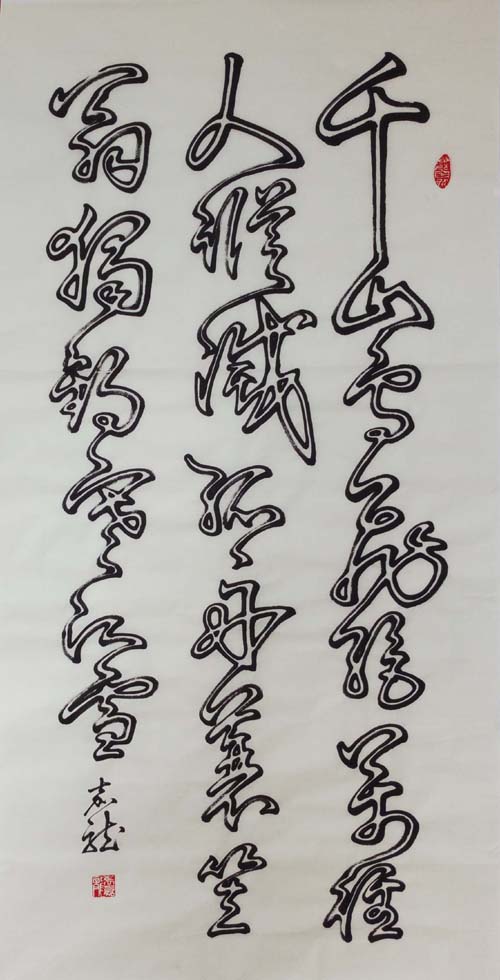 千山鸟飞绝万径
人踪灭孤舟蓑笠
翁独钓寒江雪
志龙